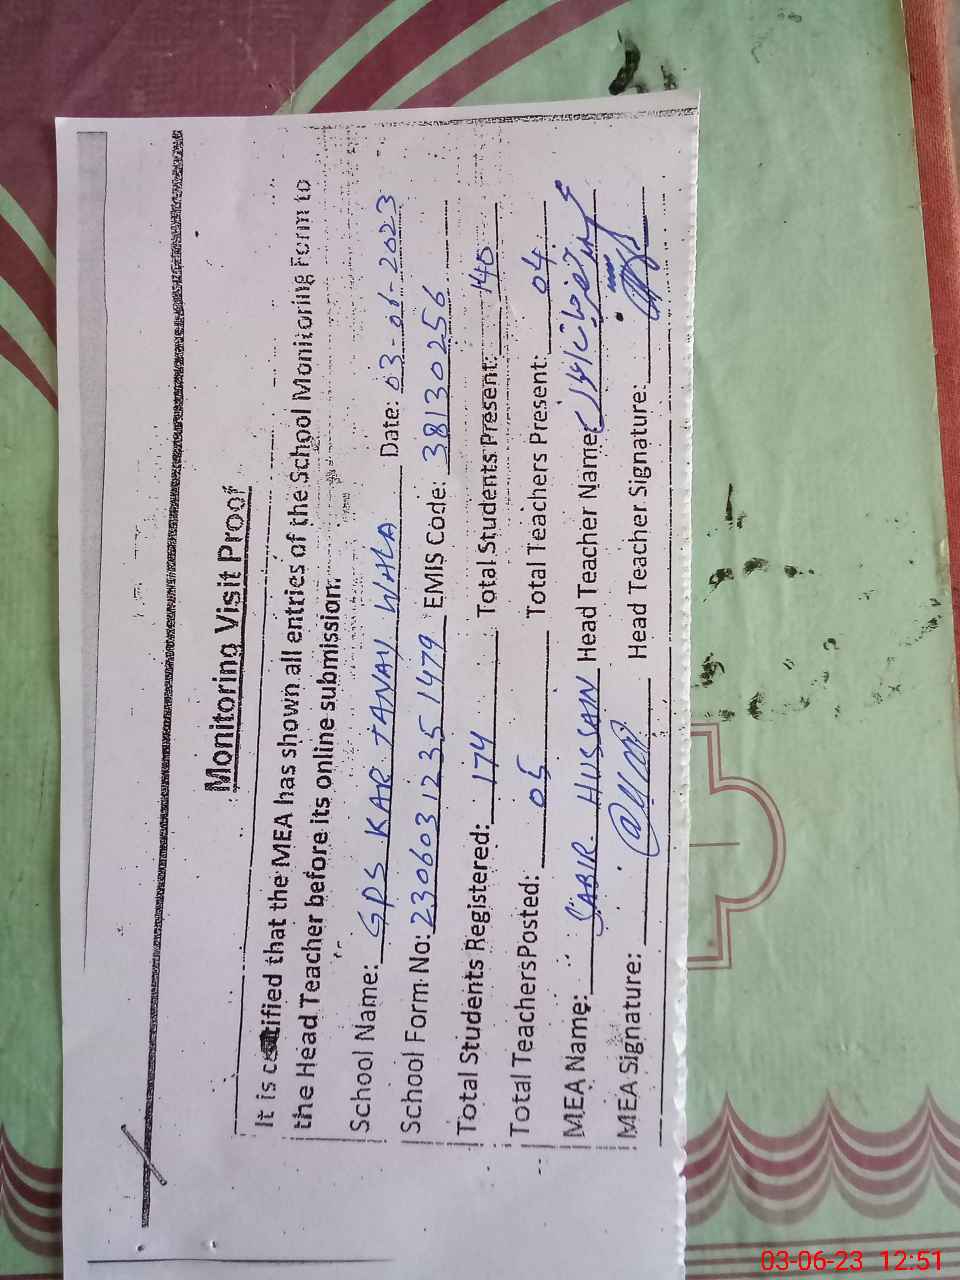 Monitoring Visit Proof
It is certified that the MEA has shown all entries of the School Monitoring Form to
the Head Teacher before its online submission.
School Name: GPS KAR TANAY WALA Date: 03-06-2023
School Form No: 23060312351479 EMIS Code: 38130256
Total Students Registered: 174 Total Students Present: 140
Total Teachers Posted: 05 Total Teachers Present: 04
MEA Name: SABIR HUSSAN Head Teacher Name:
MEA Signature: Head Teacher Signature:
03-06-23 12:51